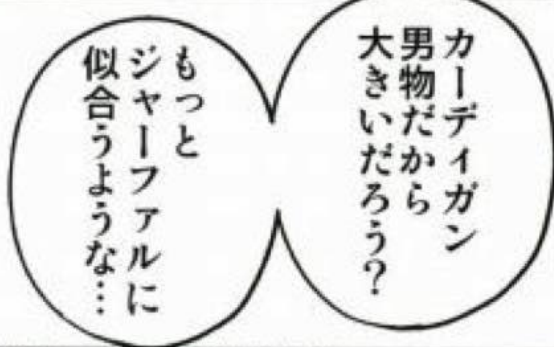 カーディガン
男物だから
大きいだろう?
もっと
ジャーファルに
似合うような…